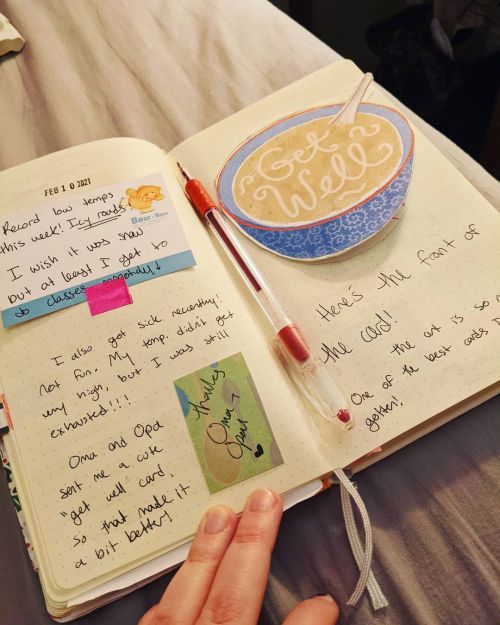 FEB 10 2021
Record low temps
this week! Icy roads.
I wish it was snow
but at least I get to
do classes remotely!
I also got sick recently!
Not fun. My temp. didn't get
very high, but I was still
exhausted!!!
Oma and Opa
sent me a cute
"get well" card.
So that made it
a bit better!
Oma +
Get
Well
Here's the front of
the card!
the art is so
One of the best cards I
gotten!